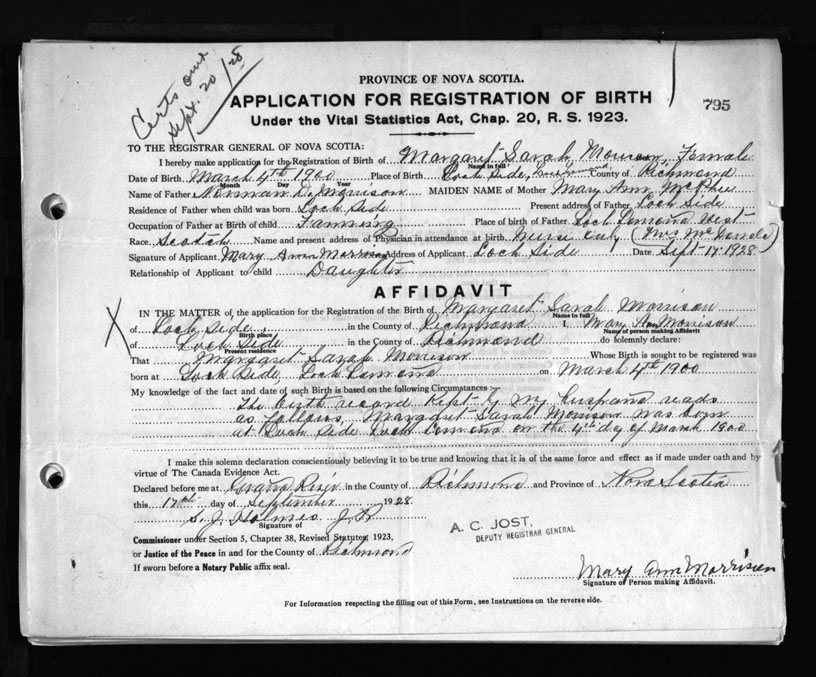 Certs out
Sept. 20/28
PROVINCE OF NOVA SCOTIA.
APPLICATION FOR REGISTRATION OF BIRTH
795
Under the Vital Statistics Act, Chap. 20, R. S. 1923.
TO THE REGISTRAR GENERAL OF NOVA SCOTIA:
I hereby make application for the Registration of Birth of Margaret Sarah Morrison, Female
Name in full
Date of Birth March 4th 1900 Place of Birth Loch Side, County of Richmond
Month Day Year
Name of Father Norman D. Morrison MAIDEN NAME of Mother Mary Ann McPhee
Residence of Father when child was born Loch Side Present address of Father Loch Side
Occupation of Father at Birth of child Farming Place of birth of Father Loch Lomond West
Race Scotch Name and present address of Physician in attendance at birth Nurse only (Mrs
Signature of Applicant Mary Ann Morrison Address of Applicant Loch Side Date Sept 17 1928
Relationship of Applicant to child Daughter
AFFIDAVIT
X
IN THE MATTER of, the application for the Registration of the Birth of Margaret Sarah Morrison
Name in full
of Loch Side, in the County of Richmond I, Mary Ann Morrison
Birth place Name of person making Affidavit
of Loch Side in the County of Richmond do solemnly declare:
Present residence
That Margaret Sarah Morrison Whose Birth is sought to be registered was
born at Loch Side, Loch Lomond on March 4th 1900
My knowledge of the fact and date of such Birth is based on the following Circumstances
The birth record kept by my husband reads
as follows, Margaret Sarah Morrison was born
at Loch Side Loch Lomond on the 4th day of March 1900
I make this solemn declaration conscientiously believing it to be true and knowing that it is of the same force and effect as if made under oath and by
virtue of The Canada Evidence Act.
Declared before me at Grand River in the County of Richmond and Province of Nova Scotia
this 17th day of September 1928.
S. J. Holmes J P
Signature of
A. C. JOST,
DEPUTY REGISTRAR GENERAL
Commissioner under Section 5, Chapter 38, Revised Statutes, 1923,
or Justice of the Peace in and for the County of Richmond
If sworn before a Notary Public affix seal.
Mary Ann Morrison
Signature of Person making Affidavit.
For Information respecting the filling out of this Form, see Instructions on the reverse side.